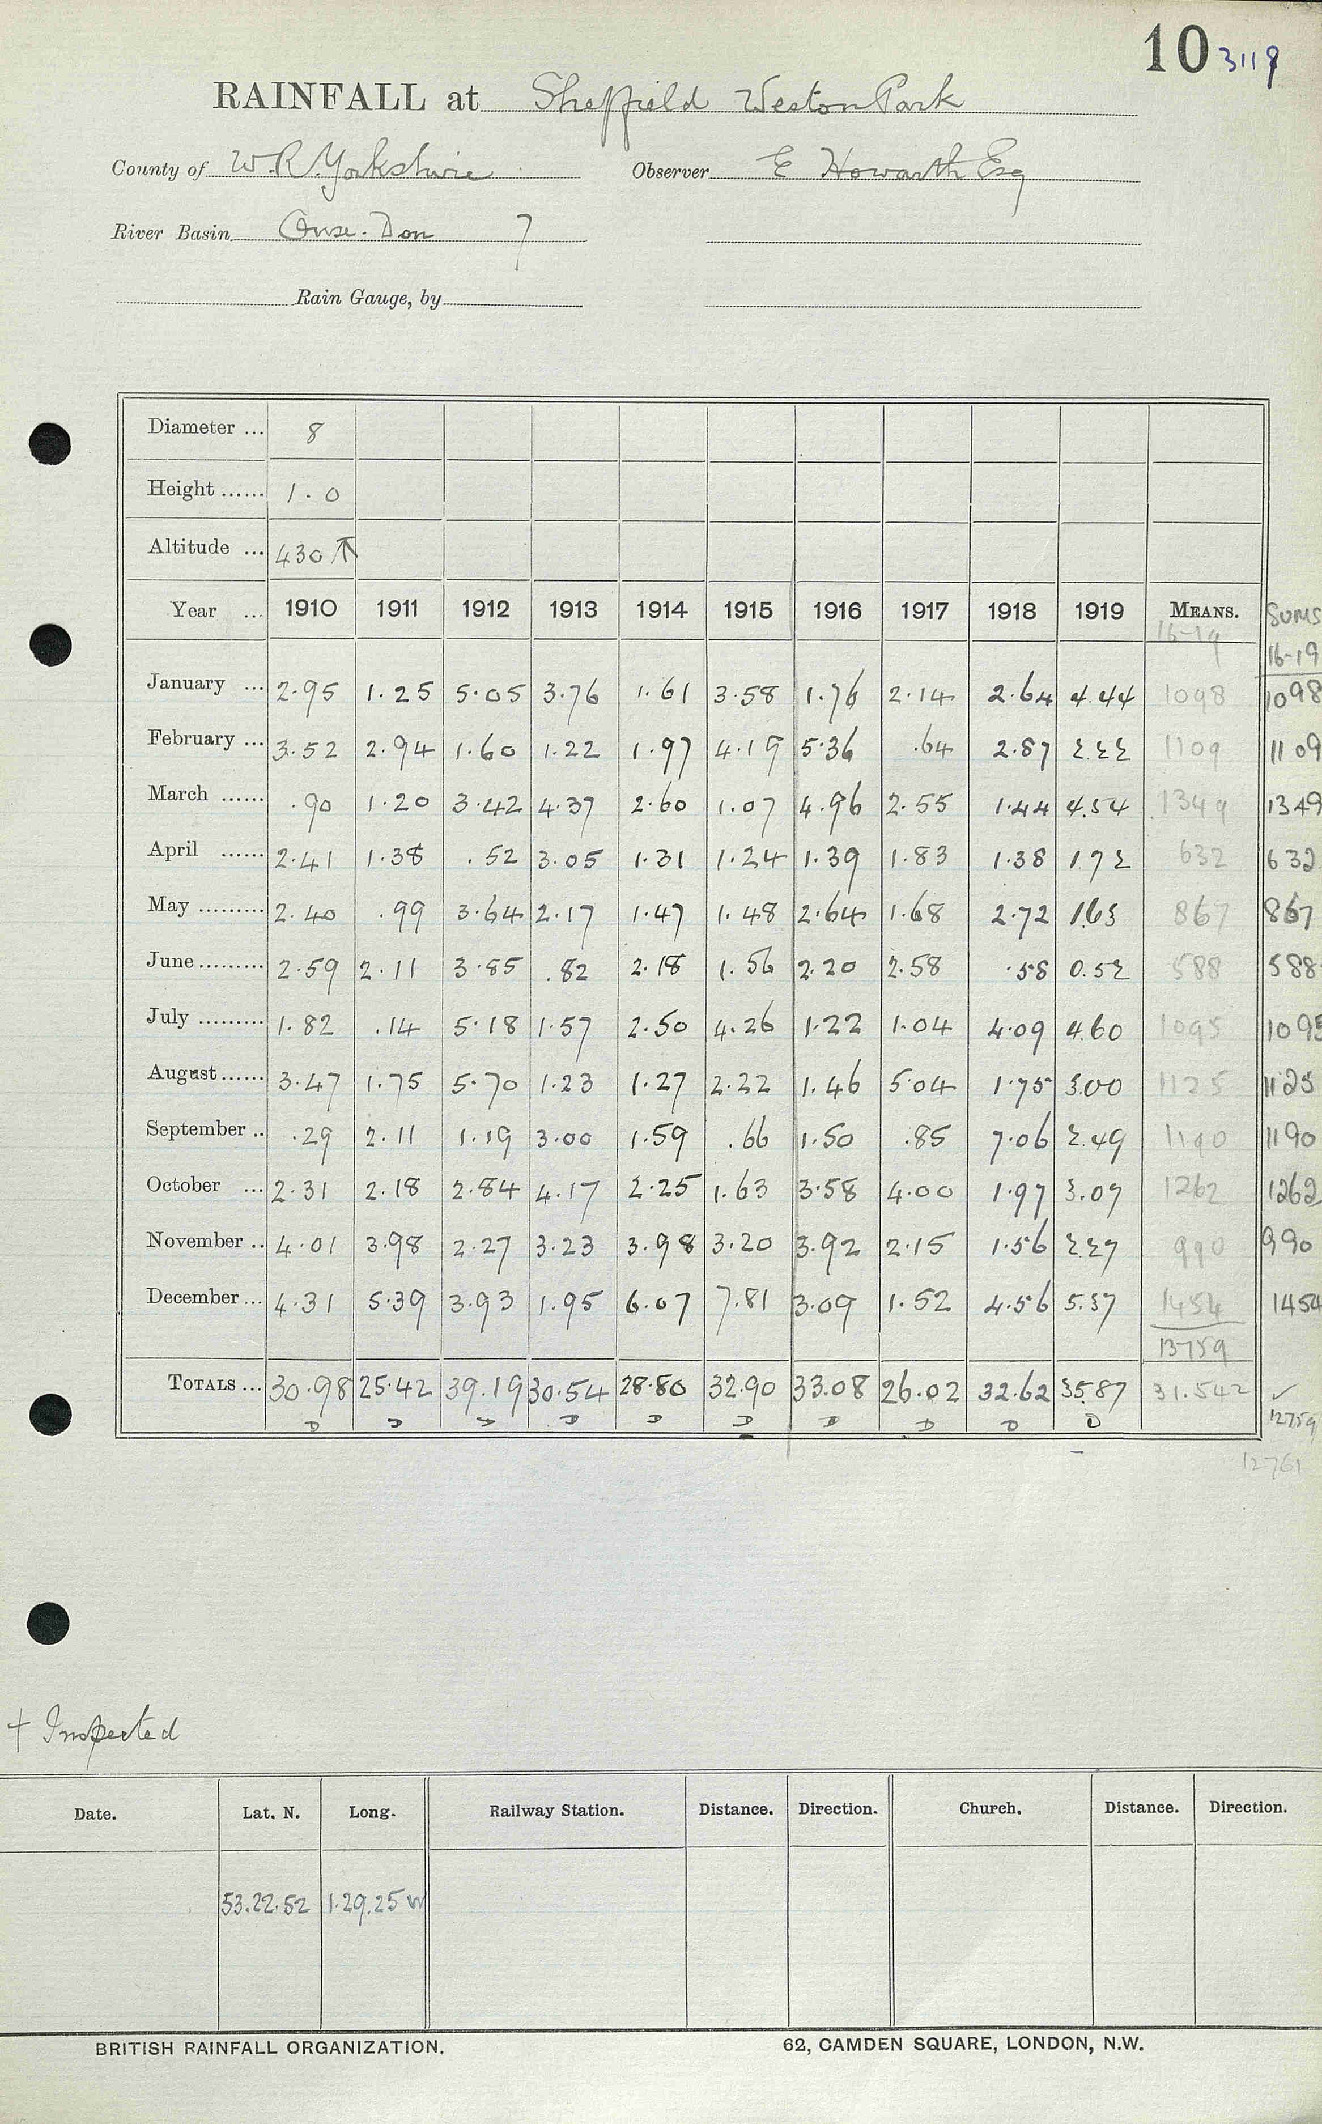 10 3119
RAINFALL at Sheffield Weston Park
County of W.R. Yorkshire Observer E Howarth Esq
River Basin Ouse. Don 7
Rain Gauge, by
Diameter ... 8
Height ...... 1.0
Altitude ... 430 ↑
Year ... 1910 1911 1912 1913 1914 1915 1916 1917 1918 1919 MEANS. Sums
16-19 16-19
January ... 2.95 1.25 5.05 3.76 1.61 3.58 1.76 2.14 2.64 4.44 1098 1098
February ... 3.52 2.94 1.60 1.22 1.97 4.19 5.36 .64 2.87 2.22 1109 1109
March ...... .90 1.20 3.42 4.37 2.60 1.07 4.96 2.55 1.44 4.54 1349 1349
April ...... 2.41 1.38 .52 3.05 1.31 1.24 1.39 1.83 1.38 1.72 632 632
May ......... 2.40 .99 3.64 2.17 1.47 1.48 2.64 1.68 2.72 1.63 867 867
June ......... 2.59 2.11 3.85 .82 2.18 1.56 2.20 2.58 .58 0.52 588 588
July ......... 1.82 .14 5.18 1.57 2.50 4.26 1.22 1.04 4.09 4.60 1095 1095
August ...... 3.47 1.75 5.70 1.23 1.27 2.22 1.46 5.04 1.75 3.00 1125 1125
September .. .29 2.11 1.19 3.00 1.59 .66 1.50 .85 7.06 2.49 1190 1190
October ... 2.31 2.18 2.84 4.17 2.25 1.63 3.58 4.00 1.97 3.07 1262 1262
November .. 4.01 3.98 2.27 3.23 3.98 3.20 3.92 2.15 1.56 2.27 990 990
December ... 4.31 5.39 3.93 1.95 6.07 7.81 3.09 1.52 4.56 5.37 1454 1454
13759
TOTALS ... 30.98 25.42 39.19 30.54 28.80 32.90 33.08 26.02 32.62 35.87 31.542 ✓
D D D D D D D D D D 12759
12761
+ Inspected
Date. Lat. N. Long. Railway Station. Distance. Direction. Church. Distance. Direction.
53.22.52 1.29.25 W
BRITISH RAINFALL ORGANIZATION. 62, CAMDEN SQUARE, LONDON, N.W.